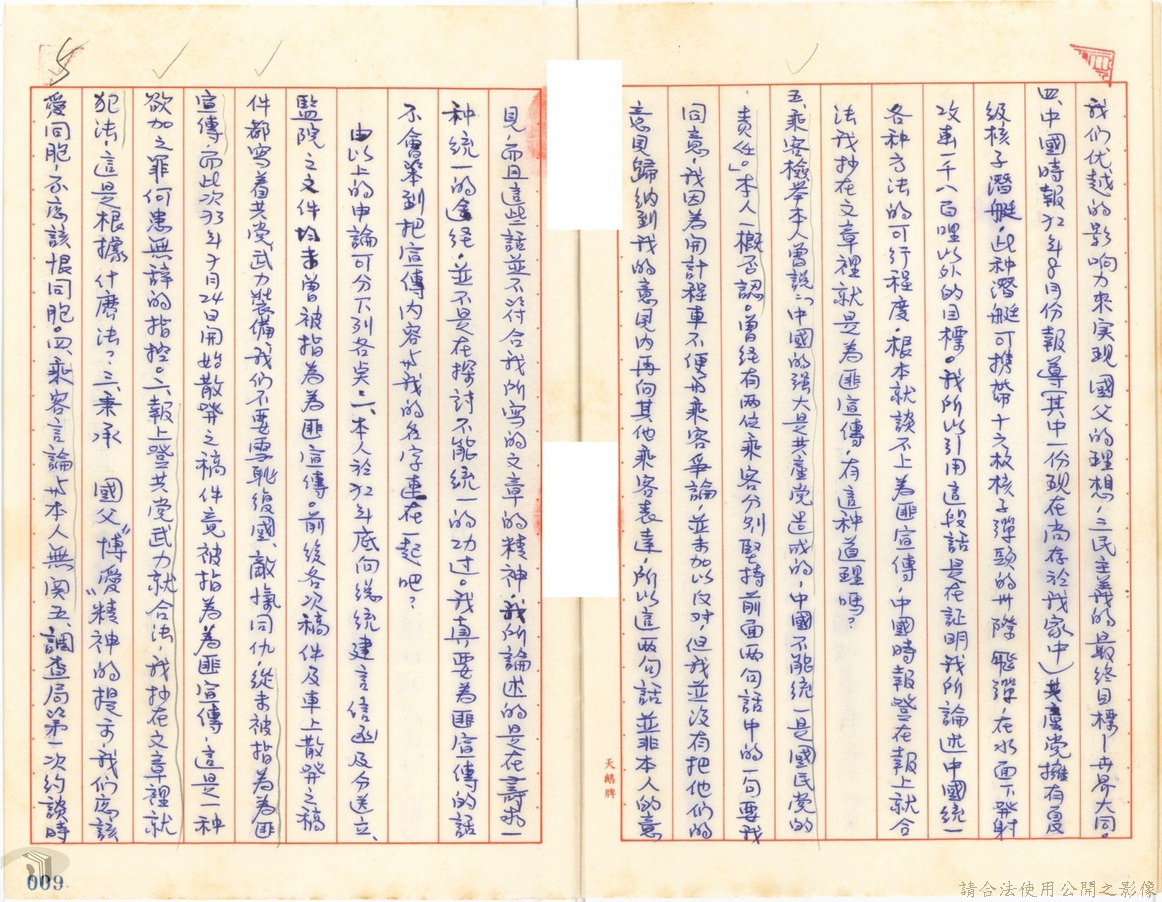 我们优越的影响力來实现國父的理想,三民主義的最終目標—世界大同。
四、中國時報72年8月份報導(其中一份現在尚存於我家中)共產党擁有夏
級核子潛艇,此种潛艇可携帶十六枚核子彈頭的州際飛彈,在水面下發射
攻擊一千八百哩以外的目標。我所以引用這段話是在証明我所論述中國統一
各种方法的可行程度,根本就談不上為匪宣傳,中國時報登在報上就合
法我抄在文章裡就是為匪宣傳,有這种道理嗎?
五、乘客檢舉本人曾說:「中國的强大是共產党造成的,中國不能統一是國民党的
責任。」本人一概否認。曾経有兩位乘客分別堅持前面兩句話中的一句要我
同意,我因為開計程車不便與乘客爭論,並未加以反对,但我並沒有把他們的
意見歸納到我的意見內再向其他乘客表達,所以這兩句話並非本人的意
見,而且這些話並不符合我所寫的文章的精神,我所論述的是在尋求一
种統一的途徑,並不是在探討不能統一的功过。我真要為匪宣傳的話
不會笨到把宣傳內容與我的名字連在一起吧?
由以上的申論可分下列各点:一、本人於72年底向總統建言信函及分送立、
監院之文件均未曾被指為匪宣傳。前後各次稿件及車上散發之稿
件都寫着共党武力裝備,我们不要雪恥復國、敵愾同仇,從未被指為為匪
宣傳,而此次73年 月24日開始散發之稿件竟被指為為匪宣傳,這是一种
欲加之罪何患無辞的指控。二、報上登共党武力就合法,我抄在文章裡就
犯法,這是根據什麼法?三、秉承 國父"博愛"精神的提示,我们應該
愛同胞,不應該恨同胞。四、乘客言論與本人無関五、調查局第一次約談時
天鵝牌
009
請合法使用公開之影像